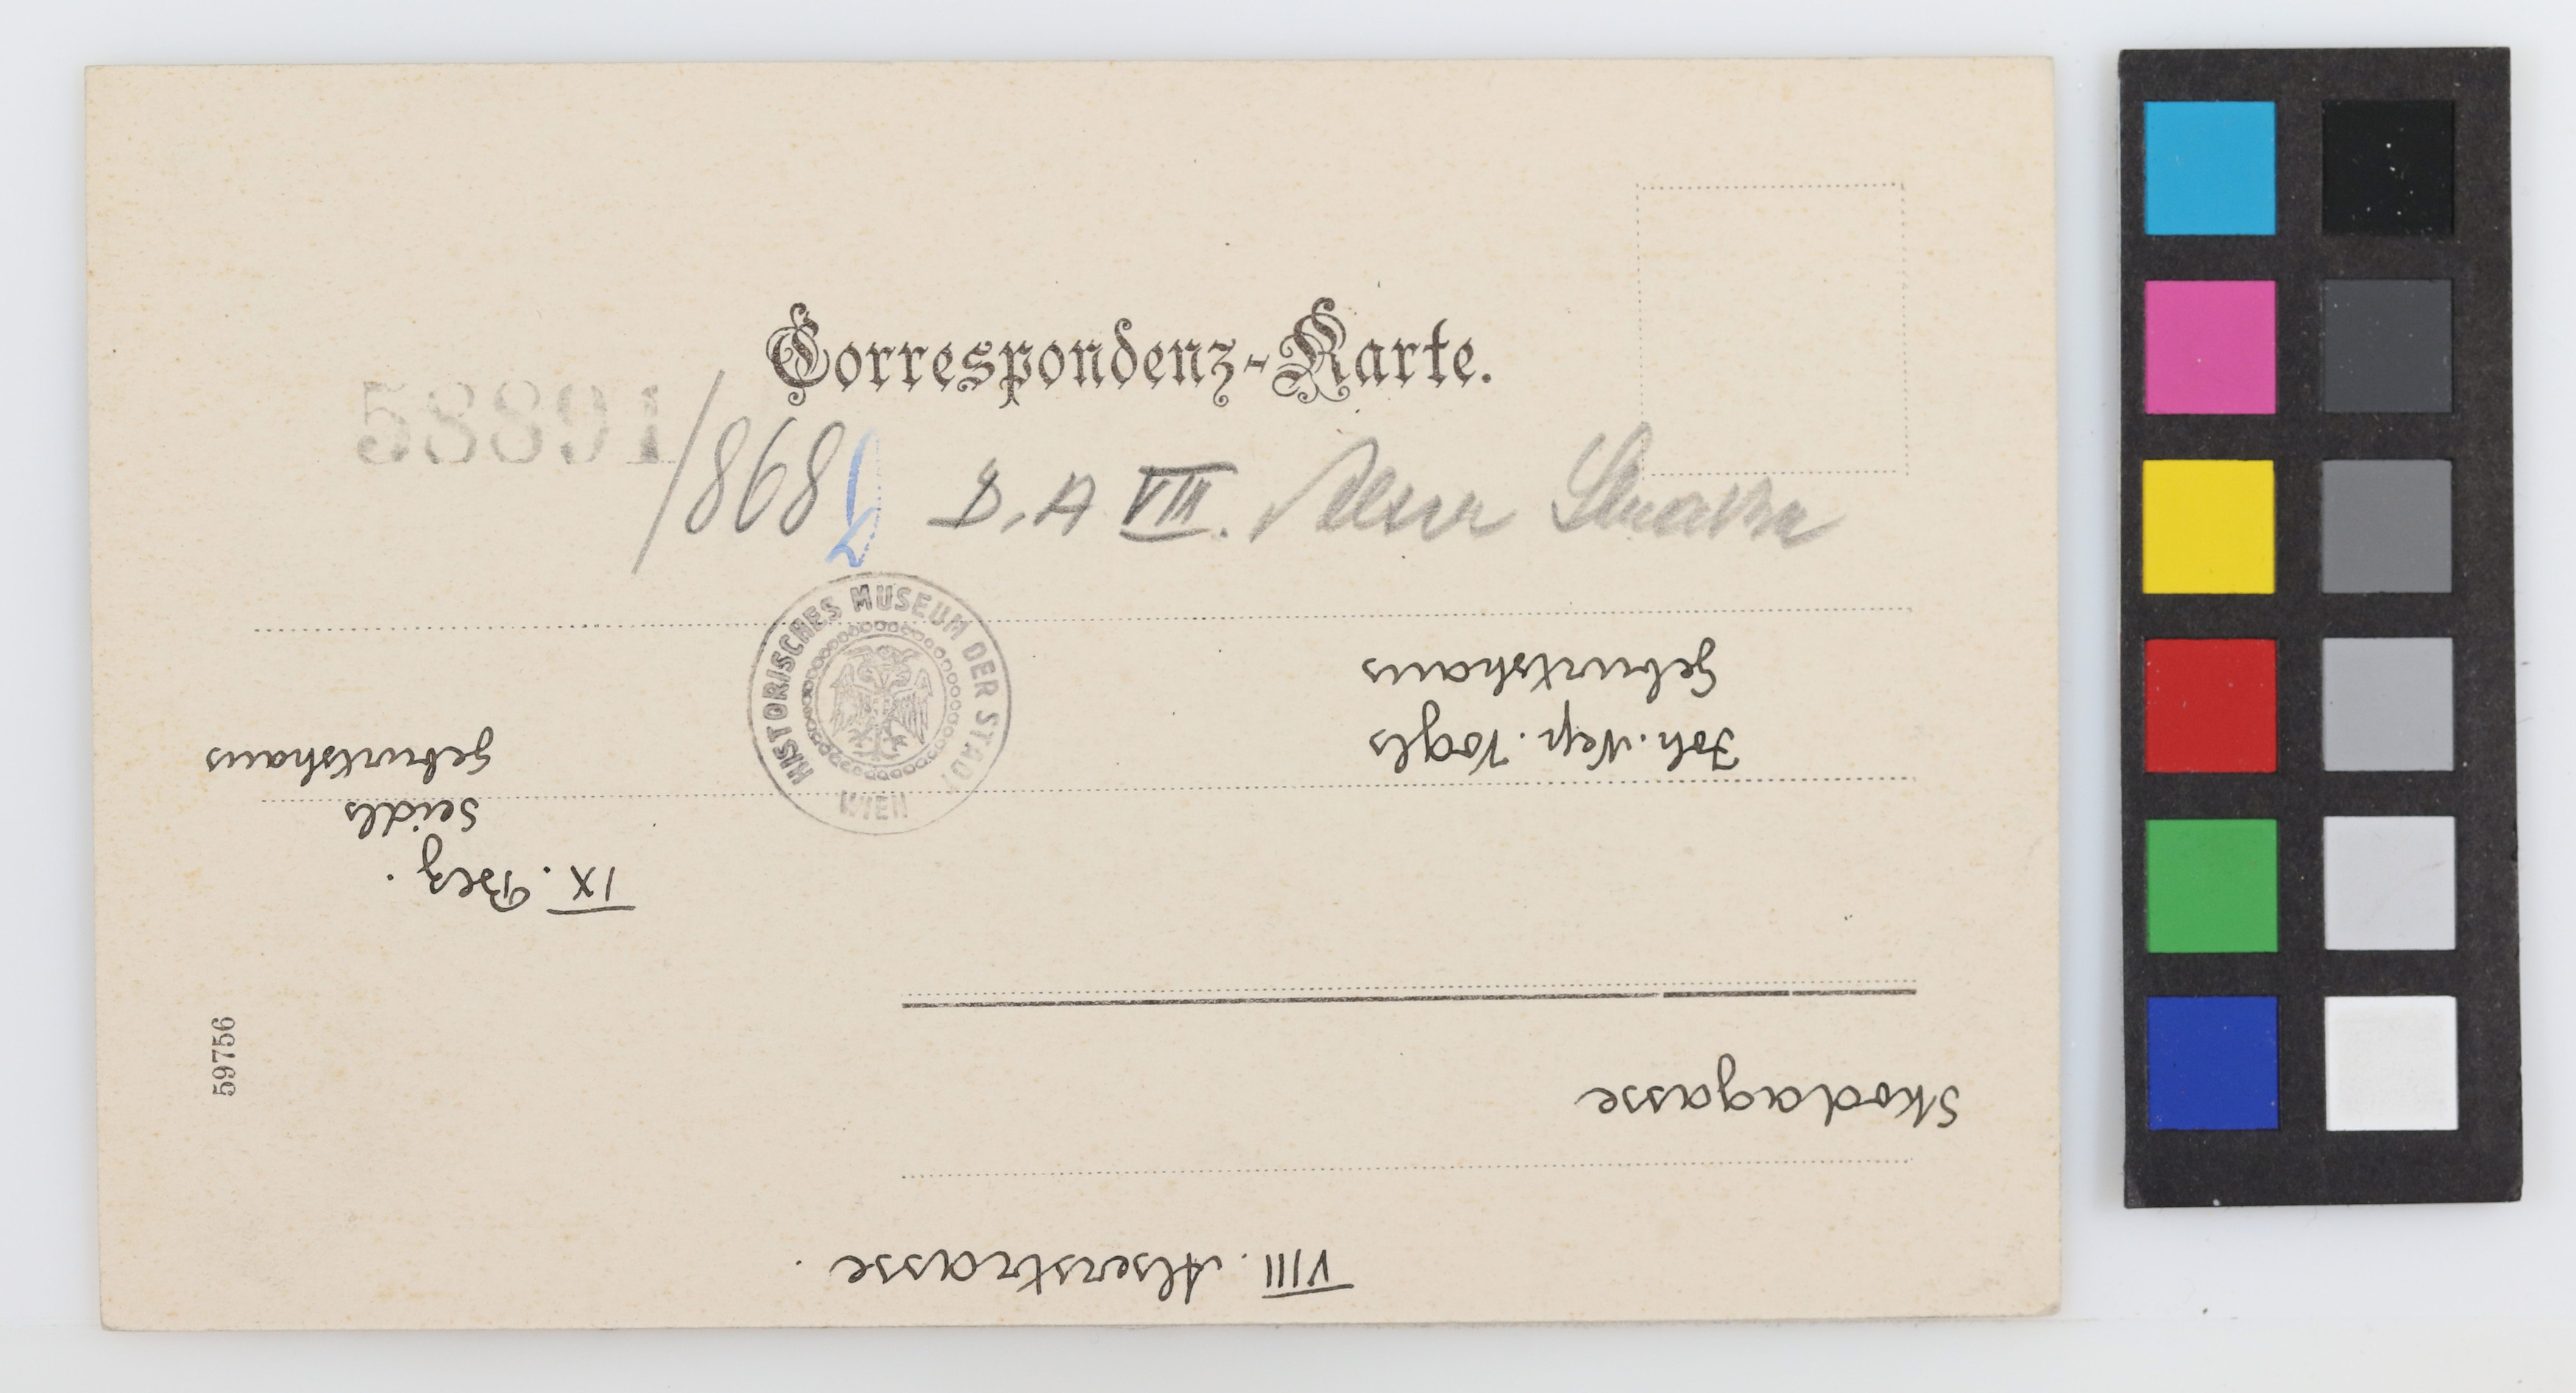 Correspondenz-Karte.
58891/868 D.A VIII. Alser Strasse
HISTORISCHES MUSEUM DER STADT WIEN
59756
VIII. Alserstrasse.
Skodagasse
IX. Bez.
Seidls
Geburtshaus
Joh. Nep. Vogls
Geburtshaus